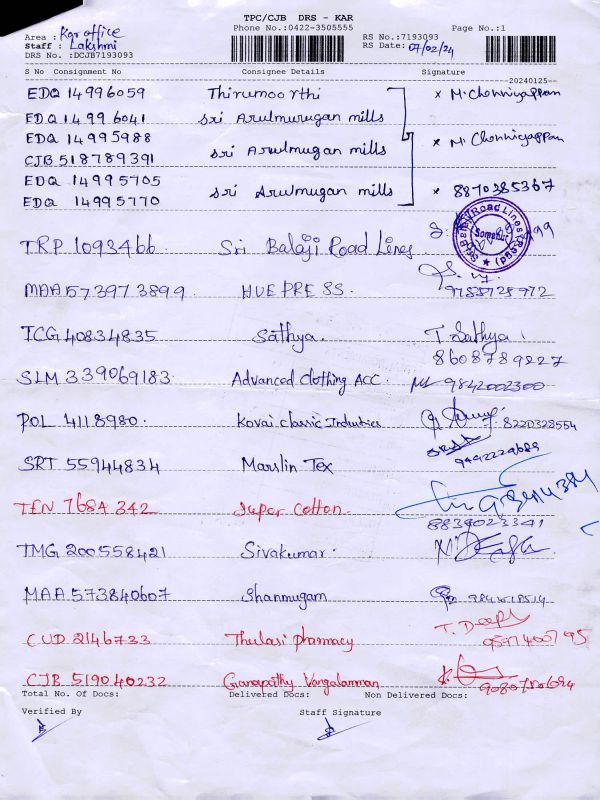 TPC/CJB DRS - KAR
Phone No.:0422-3505555
Area : Kar office
Staff : Lakshmi
DRS No. :DCJB7193093
RS No.:7193093
RS Date: 07/02/24
Page No.:1
S No Consignment No Consignee Details Signature
20240125
EDQ 14996059 Thirumoorthi x M. Chenniyappan
EDQ 14996041 Sri Arulmurugan mills
EDQ 14995988
CJB 518789391 Sri Arulmugan mills x M. Chenniyappan
EDQ 14995705
EDQ 14995770 Sri Arulmugan mills x 8870385367
TRP 1093466 Sri Balaji Road Lines
MAA 573973899 HUE PRESS
TCG 40834835 Sathya. T. Sathya
8608789227
SLM 339069183 Advanced clothing ACC. 9842002300
POL 4118980. Kovai classic Industries 8220328554
SRT 55944834 Marslin Tex
TEN 7684342 Super cotton.
8839023341
TMG 200558421 Sivakumar.
MAA 573840607 Shanmugam
CUD 2146733 Thulasi pharmacy
CJB 519040232 Ganapathy Vangalamman
Total No. Of Docs: Delivered Docs: Non Delivered Docs:
Verified By Staff Signature